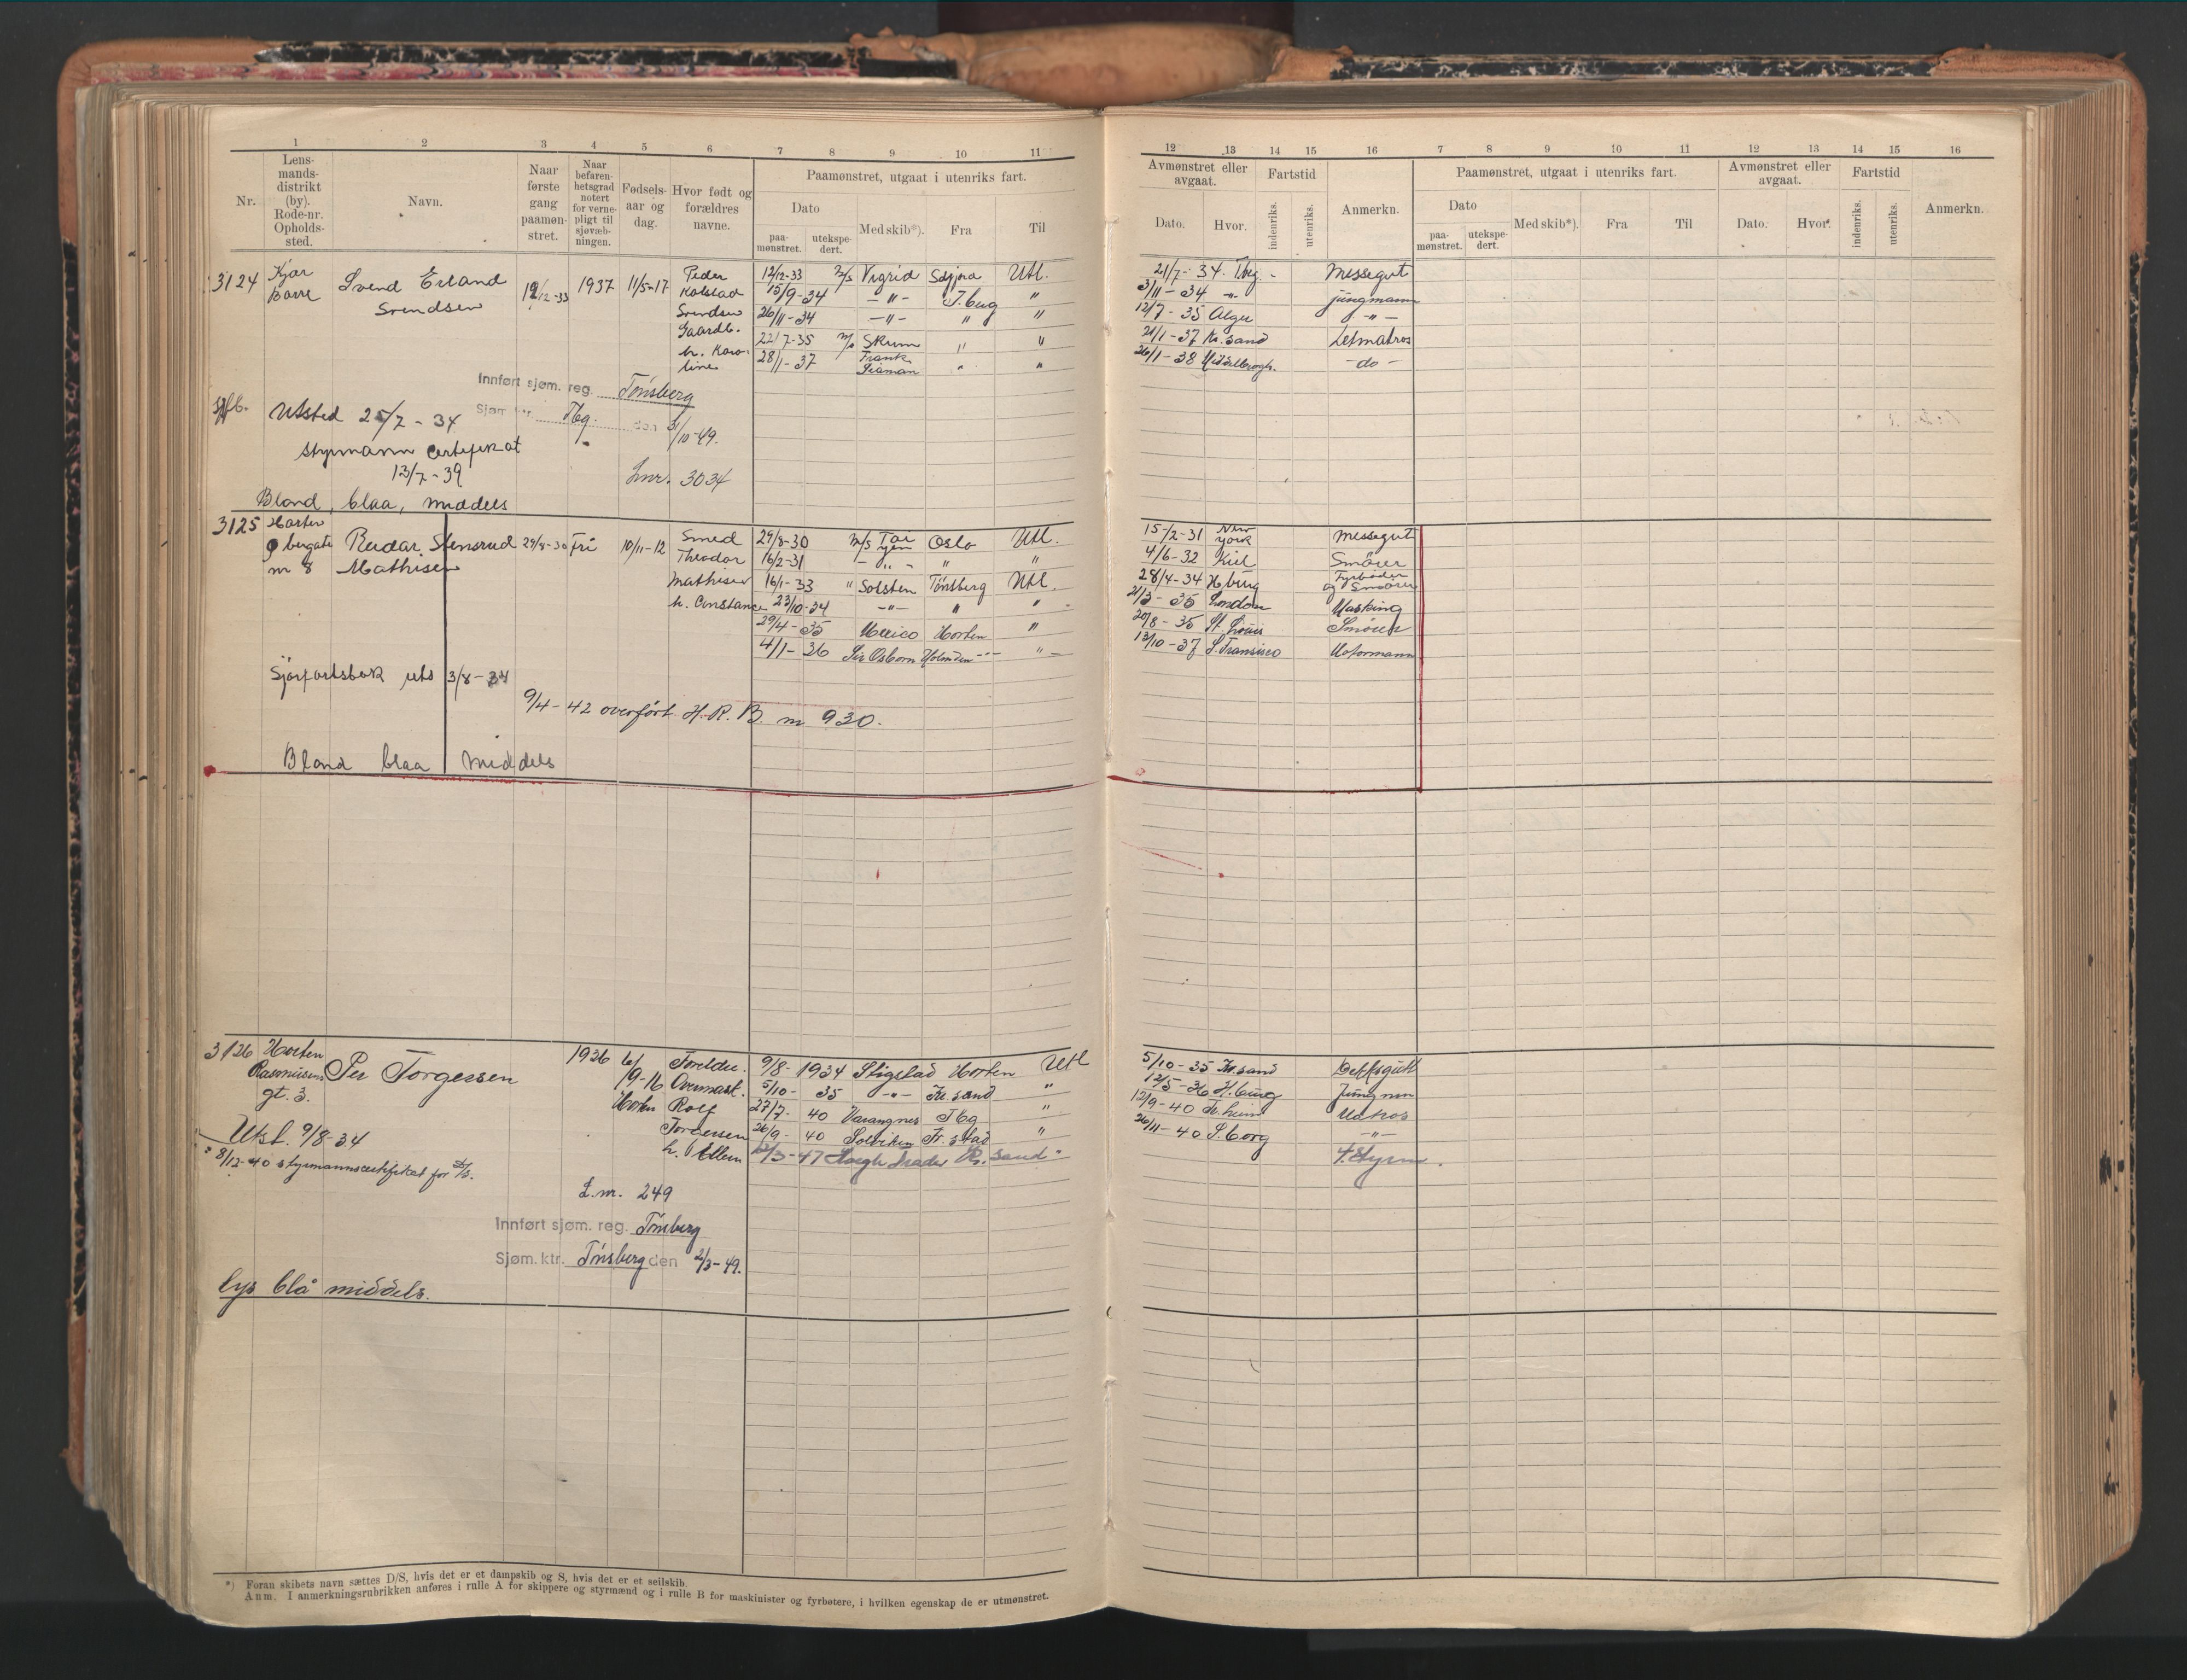 1 2 3 4 5 6 7 8 9 10 11
Nr. Lens-mands-distrikt (by). Rode-nr. Opholds-sted. Navn. Naar første gang paamøn-stret. Naar befaren-hetsgrad notert for verne-pligt til sjøvæb-ningen. Fødsels-aar og dag. Hvor født og forældres navne. Paamønstret, utgaat i utenriks fart.
Dato paa-mønstret. utekspe-dert. Med skib*). Fra Til
3124 Kjær Svend Erland 12/12-33 1937 11/5-17 Peder 12/12-33 M/S Vigrid Utl.
Borre Svendsen Kolstad 15/9-34 -"- T.berg "
Svendsen 26/11-34 -"- " "
Gaardb. 22/7-35 M/S Skrim " "
h. Karo- 28/1-37 Frank " "
line Seaman
Innført sjøm. reg. Tönsberg
Sjfb. Utsted 25/7-34 Sjøm. ktr. Tbg. den 31/10-49.
Styrmann Certifikat
13/7-39 Lnr. 3034
Blond, blaa, middels
3125 Horten Reidar Stensrud 29/8-30 Fri 10/11-12 Smed 29/8-30 M/S Tai Yin Oslo Utl.
bergate Mathisen Theodor 16/2-31 -"- " "
nr 8 Mathisen 16/1-33 " Solsten Tönsberg Utl.
h. Constance 23/10-34 -"- " "
29/4-35 Mexico Horten "
4/1-36 Sir Osborn Holmden -"-
Sjøfartsbok uts 3/8-34
9/4-42 overført H.R.B. nr 930.
Blond blaa middels
3126 Horten Per Torgersen 1936 6/9-16 Foreldre. 9/8-1934 Stigstad Horten Utl
Rasmussens Horten Overmask. 5/10-35 -"- Kr.sand "
gt. 3. Rolf 27/7-40 Varangnes Tbg "
Utst. 9/8-34 Torgersen 26/9-40 Solviken Fr.stad "
8/12-40 styrmannscertifikat for D/S. h. Ellen /3-47 Kr. sand "
L.nr. 249
Innført sjøm. reg. Tönsberg
Sjøm. ktr. Tönsberg den 2/3-49.
lys blå middels.
*) Foran skibets navn sættes D/S, hvis det er et dampskib og S, hvis det er et seilskib.
Anm. I anmerkningsrubrikken anføres i rulle A for skippere og styrmænd og i rulle B for maskinister og fyrbøtere, i hvilken egenskap de er utmønstret.
12 13 14 15 16 7 8 9 10 11 12 13 14 15 16
Avmønstret eller avgaat. Fartstid Anmerkn. Paamønstret, utgaat i utenriks fart. Avmønstret eller avgaat. Fartstid Anmerkn.
Dato. Hvor. indenriks. utenriks. Dato paa-mønstret. utekspe-dert. Med skib*). Fra Til Dato. Hvor. indenriks. utenriks.
21/7-34 Tbg. Messegut
3/11-34 -"- jungmann
12/7-35 Alger -"-
21/1-37 Kr.sand Letmatros
26/1-38 Middelbrogh. -do-
15/2-31 New York Messegut
4/6-32 Kiel Smører
28/4-34 Hburg Fyrbøder og Smører
2/3-35 London Masking
20/8-35 St. Louis Smører
13/10-37 S. Fransisco Motormann
5/10-35 Kr.sand Dekksgutt
12/5-36 H.burg Jungmn
12/9-40 Tr.heim Matros
26/11-40 S.borg -"-
4. Styrm.